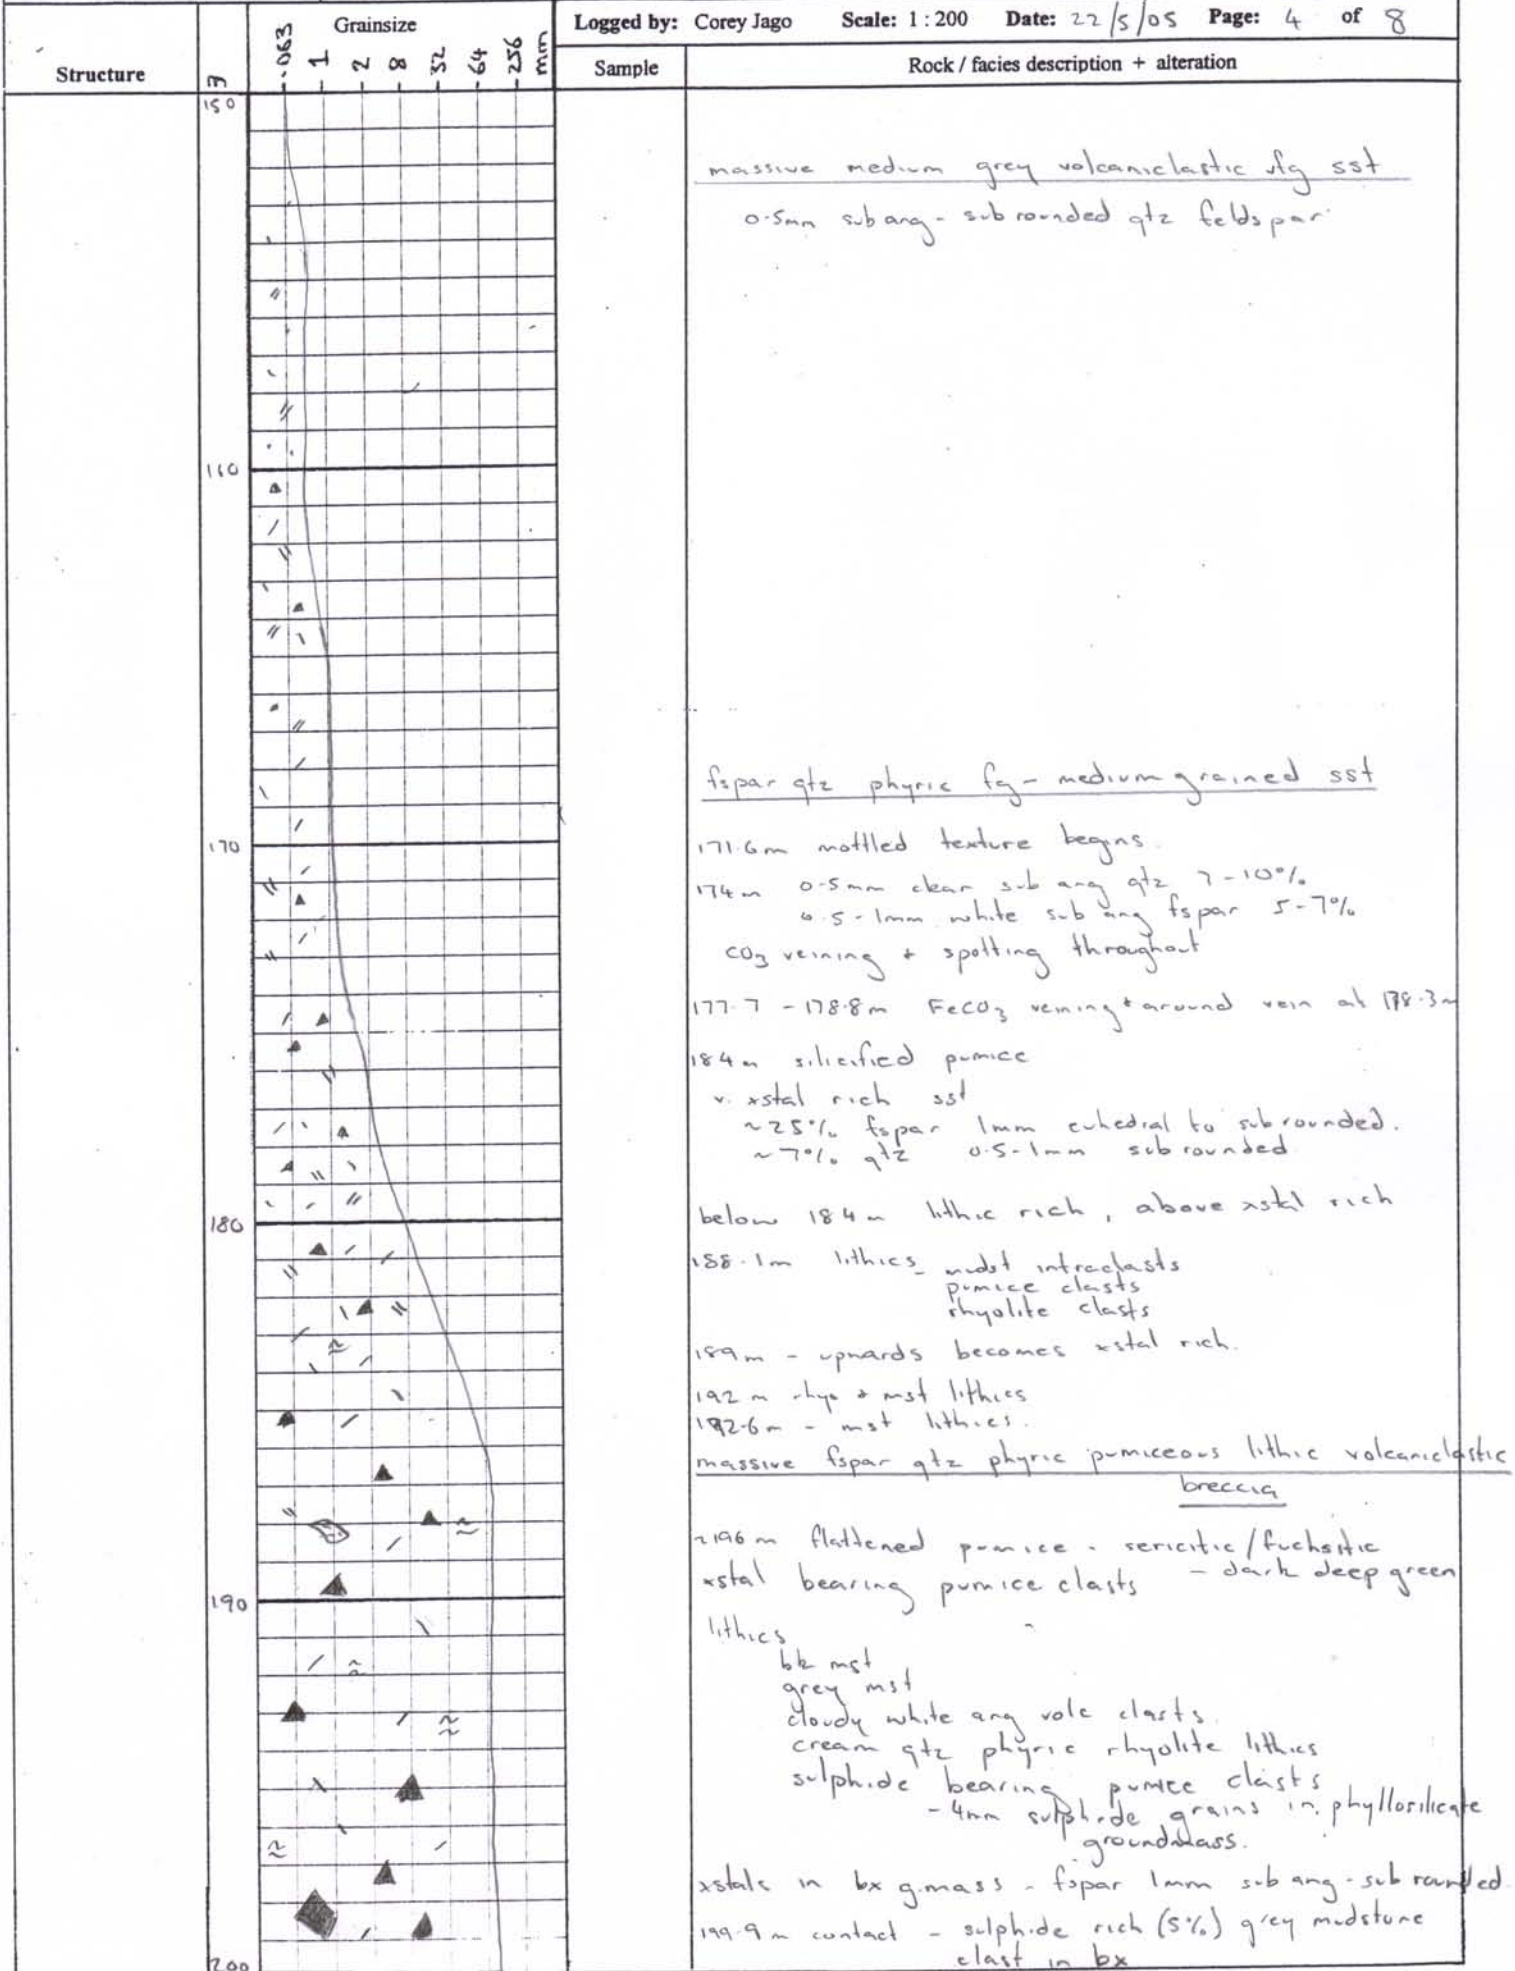 Structure
m
Grainsize
.063 1 2 8 32 64 256 mm
Logged by: Corey Jago Scale: 1 : 200 Date: 22/5/05 Page: 4 of 8
Sample
Rock / facies description + alteration
150
massive medium grey volcaniclastic vfg sst
0.5mm sub ang - sub rounded qtz feldspar
160
fspar qtz phyric fg - medium grained sst
170
171.6m mottled texture begins.
174m 0.5mm clear sub ang qtz 7-10%
0.5-1mm white sub ang fspar 5-7%
CO3 veining + spotting throughout
177.7 - 178.8m FeCO3 veining + around vein at 178.3m
184m silicified pumice
v. xstal rich sst
~25% fspar 1mm euhedral to subrounded.
~7% qtz 0.5-1mm sub rounded
180
below 184m lithic rich, above xstal rich
188.1m lithics - mudst intraclasts
pumice clasts
rhyolite clasts
189m - upwards becomes xstal rich.
192m rhyo + mst lithics
192.6m - mst lithics.
massive fspar qtz phyric pumiceous lithic volcaniclastic
breccia
~196m flattened pumice - sericitic/fuchsitic
xstal bearing pumice clasts - dark deep green
190
lithics
bk mst
grey mst
cloudy white ang volc clasts.
cream qtz phyric rhyolite lithics
sulphide bearing pumice clasts
- 4mm sulphide grains in phyllosilicate
groundmass.
xstals in bx g.mass - fspar 1mm sub ang - sub rounded
199.9m contact - sulphide rich (5%) grey mudstone
clast in bx
200